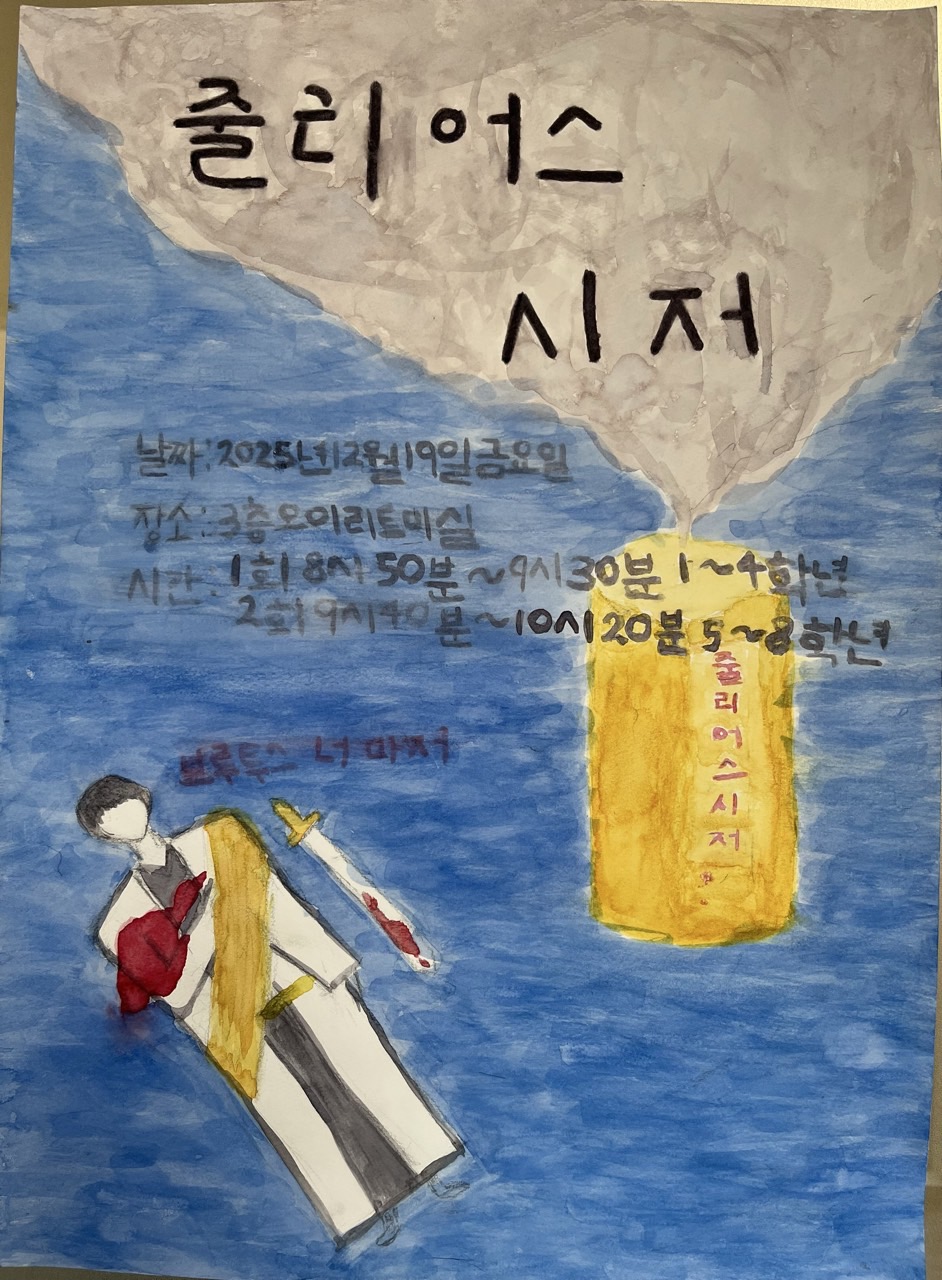 줄리어스
시저
날짜:2025년12월19일금요일
장소:3층오이리트미실
시간:1회 8시 50분~9시30분 1~4학년
2회 9시40분~10시20분 5~8학년
줄리어스시저
브루투스 너 마저